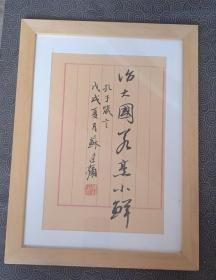 治大國若烹小鮮
孔子箴言
戊戌夏月蘇